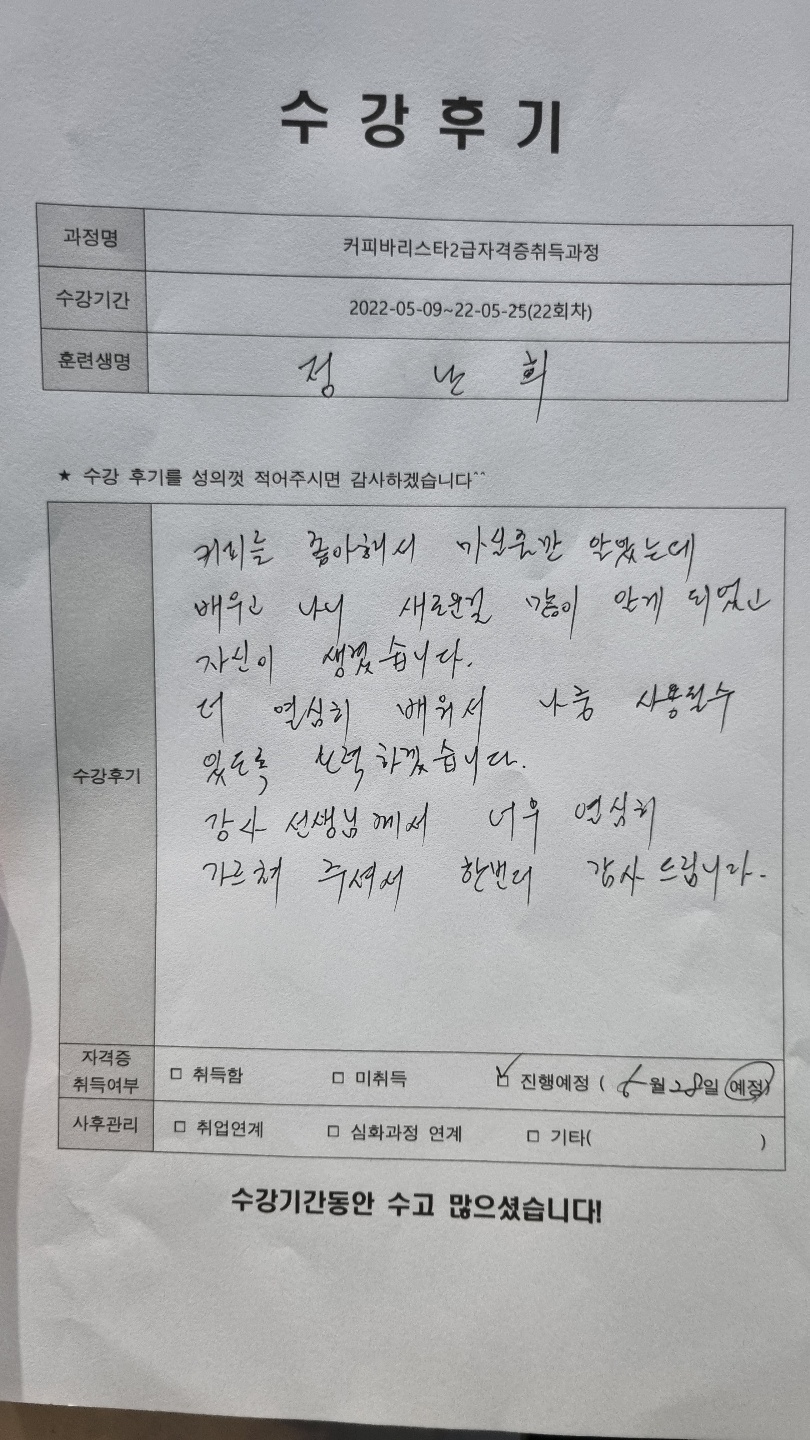 수 강 후 기
과정명 커피바리스타2급자격증취득과정
수강기간 2022-05-09~22-05-25(22회차)
훈련생명 정 난 희
★ 수강 후기를 성의껏 적어주시면 감사하겠습니다^^
수강후기
커피를 좋아해서 마실줄만 알았는데
배우고 나니 새로운걸 많이 알게 되었고
자신이 생겼습니다.
더 열심히 배워서 나중 사용될수
있도록 노력하겠습니다.
강사 선생님께서 너무 열심히
가르쳐 주셔서 한번더 감사드립니다.
자격증
취득여부 □ 취득함 □ 미취득 □ 진행예정 ( 6월 28일 예정)
사후관리 □ 취업연계 □ 심화과정 연계 □ 기타( )
수강기간동안 수고 많으셨습니다!